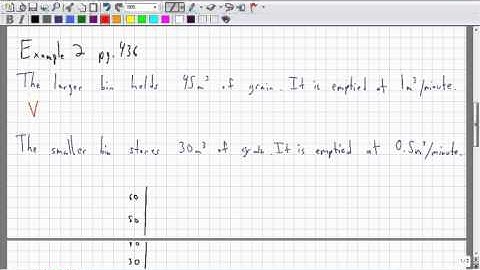 Example 2 pg. 436
The larger bin holds 45m³ of grain. It is emptied at 1m³/minute.
V
The smaller bin stores 30m³ of grain. It is emptied at 0.5m³/minute.
60
50
40
30